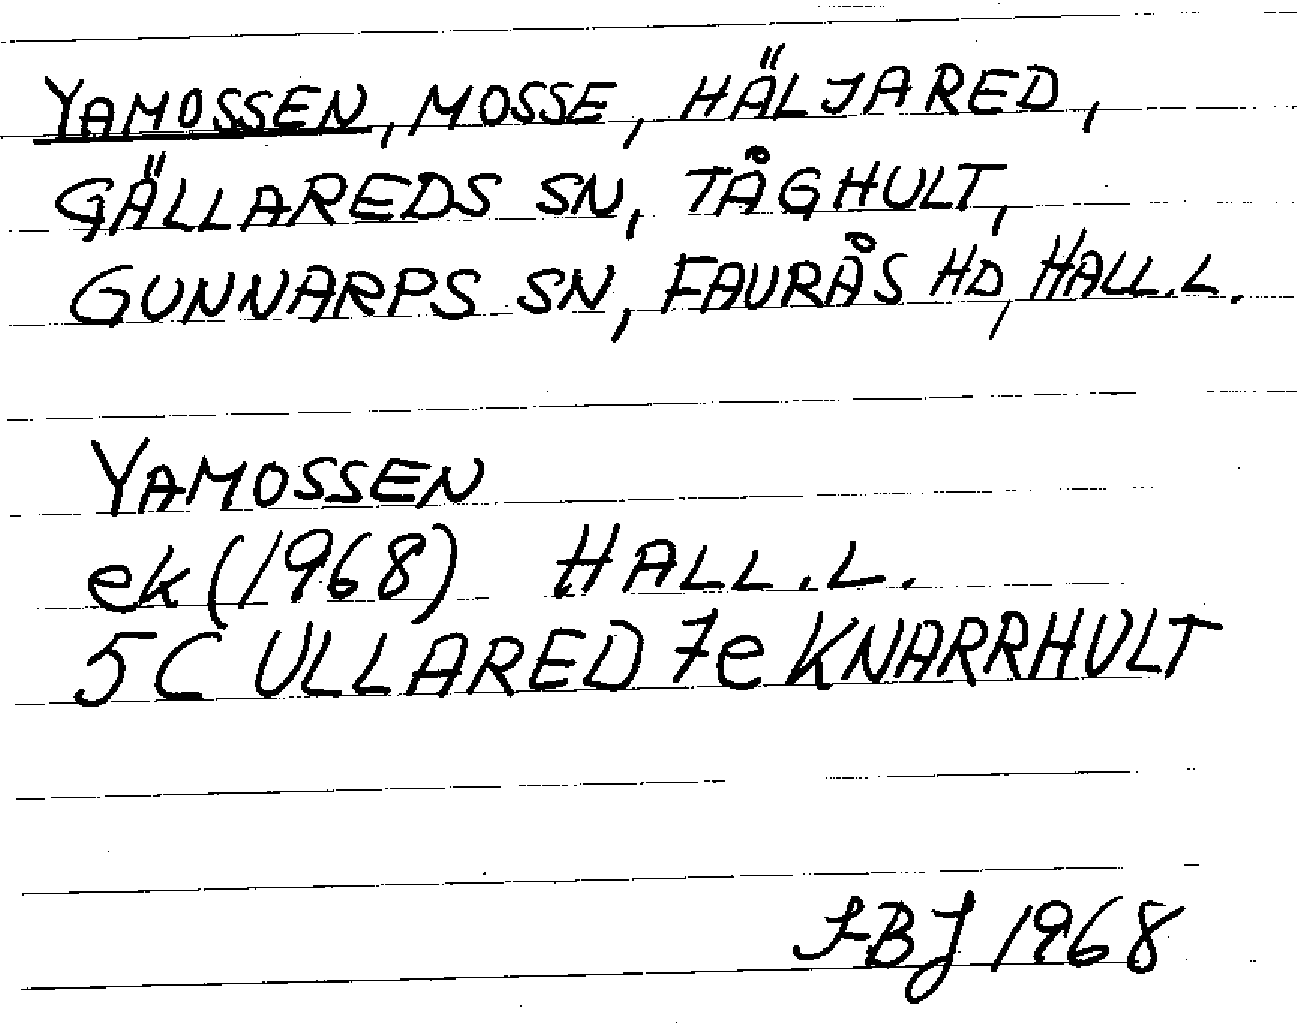 YAMOSSEN, MOSSE, HÄLJARED,
GÄLLAREDS SN, TÅGHULT,
GUNNARPS SN, FAURÅS HD, HALL.L.
YAMOSSEN
ek (1968) HALL.L.
5C ULLARED 7e KNARRHULT
IBJ 1968